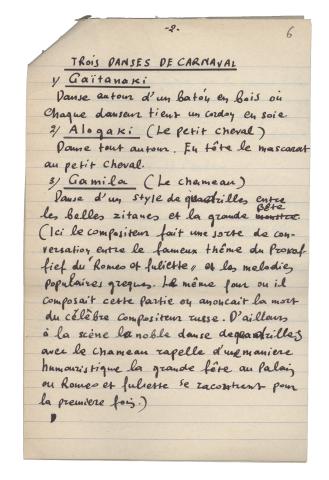 -2-
6
TROIS DANSES DE CARNAVAL
1) Gaïtanaki
Danse autour d'un batón en bois où
chaque danseur tient un cordon en soie
2) Alogaki (Le petit cheval)
Danse tout autour. En tête le mascarat
au petit cheval.
3) Gamila (Le chameau)
Danse d'un style de quadrilles entre
les belles zitanes et la grande bête
(Ici le compositeur fait une sorte de con-
versation entre le fameux thème du Prokof-
fief du "Romeo et Juliette" et les melodies
populaires greques. Le même jour ou il
composait cette partie on anoncait la mort
du célèbre compositeur russe. D'ailleurs
à la scène le noble danse de quadrilles
avec le chameau rapelle d'une maniere
humouristique la grande fête au Palais
ou Romeo et Juliette se racontrent pour
la première fois.)